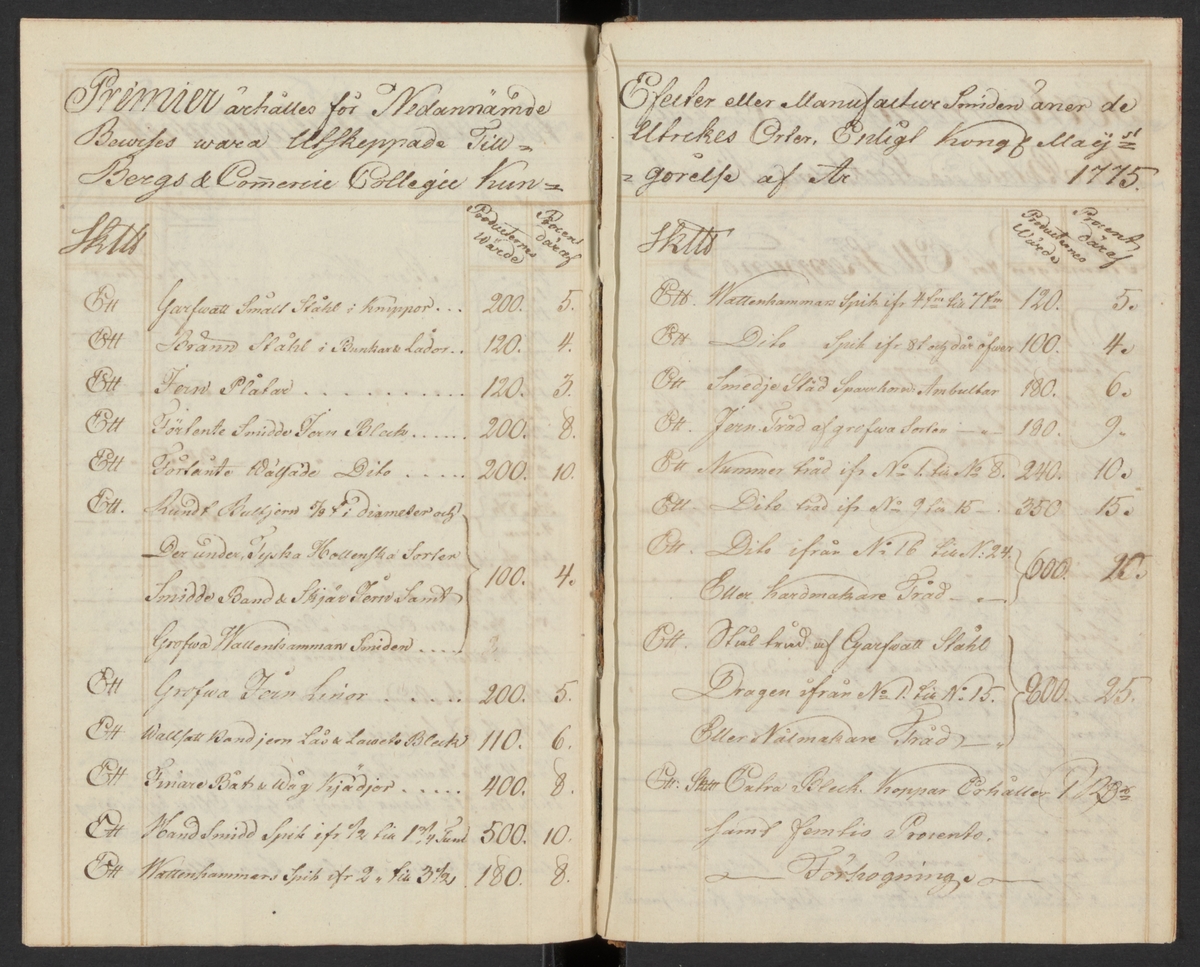 Primier ärhålles för Nedannämde
Bewises wara Utskeppade Till=
Bergs & Commercie Collegie Kun=
Sktts
Producternes Wärde
Procent däraf
Ett Garfwatt Smält Ståhl i Knippor... 200. 5.
Ett Bränn Ståhl i Bunkar & Lådor.. 120. 4.
Ett Jern Plåtar . . . . . . . . . . 120. 3.
Ett Förtente Smidde Jern Bleck...... 200. 8.
Ett Förtänte Wällsade Dito...... 200. 10.
Ett. Rundt Bultjern 7/8 t: i diameter och
Der under, Tyska Hollenska Sorter
Smidde Band & Skjär Jern Samt 100. 4.
Grofwa Wattenhammars Smiden.....
Ett Grofwa Järn Linor . . . . . . 200. 5.
Ett Wallsatt Bandjern Lås & Lawets Bleck 110. 6.
Ett Finare Båk & Wåg Kjädjor ..... 400. 8.
Ett Handsmidd Spik ifr 1/2 till 1 3/4 Tum 500. 10.
Ett Wattenhammars Spik ifr 2 „ till 3 1/2 180. 8.
Efecter eller Manufactur Smiden åner de
Utrikes Orter, Enligt Kongl Maÿst=
=görelse af År 1775.
Sktts
Producternes Wärde
Procent däraf
Ett. Wattenhammars Spik ifr 4 tm till 7 tm 120. 5.
Ett Dito Spik ifr 8 t och där öfwer 100. 4.
Ett Smedje Städ Sparrhorn Ambultar 180. 6.
Ett. Jern Tråd af grofwa Sorter — „ — 180. 9.
Ett Nummer tråd ifr No 1. till No 8. 240. 10.
Ett. Dito tråd ifr No 9 till 15 — . 350 15.
Ett. Dito ifrån No 16 till No: 24.
Eller Kardmakare Tråd — „ — 600. 25.
Ett. Stål tråd af Garfwatt Ståhl
Dragen ifrån No 1. till No 15. 800. 25.
Eller Nålmakare Tråd — „
Ett. Sktt Extra Bleck Koppar Erhåller
samt femtio Procento.
— Förhögning. —